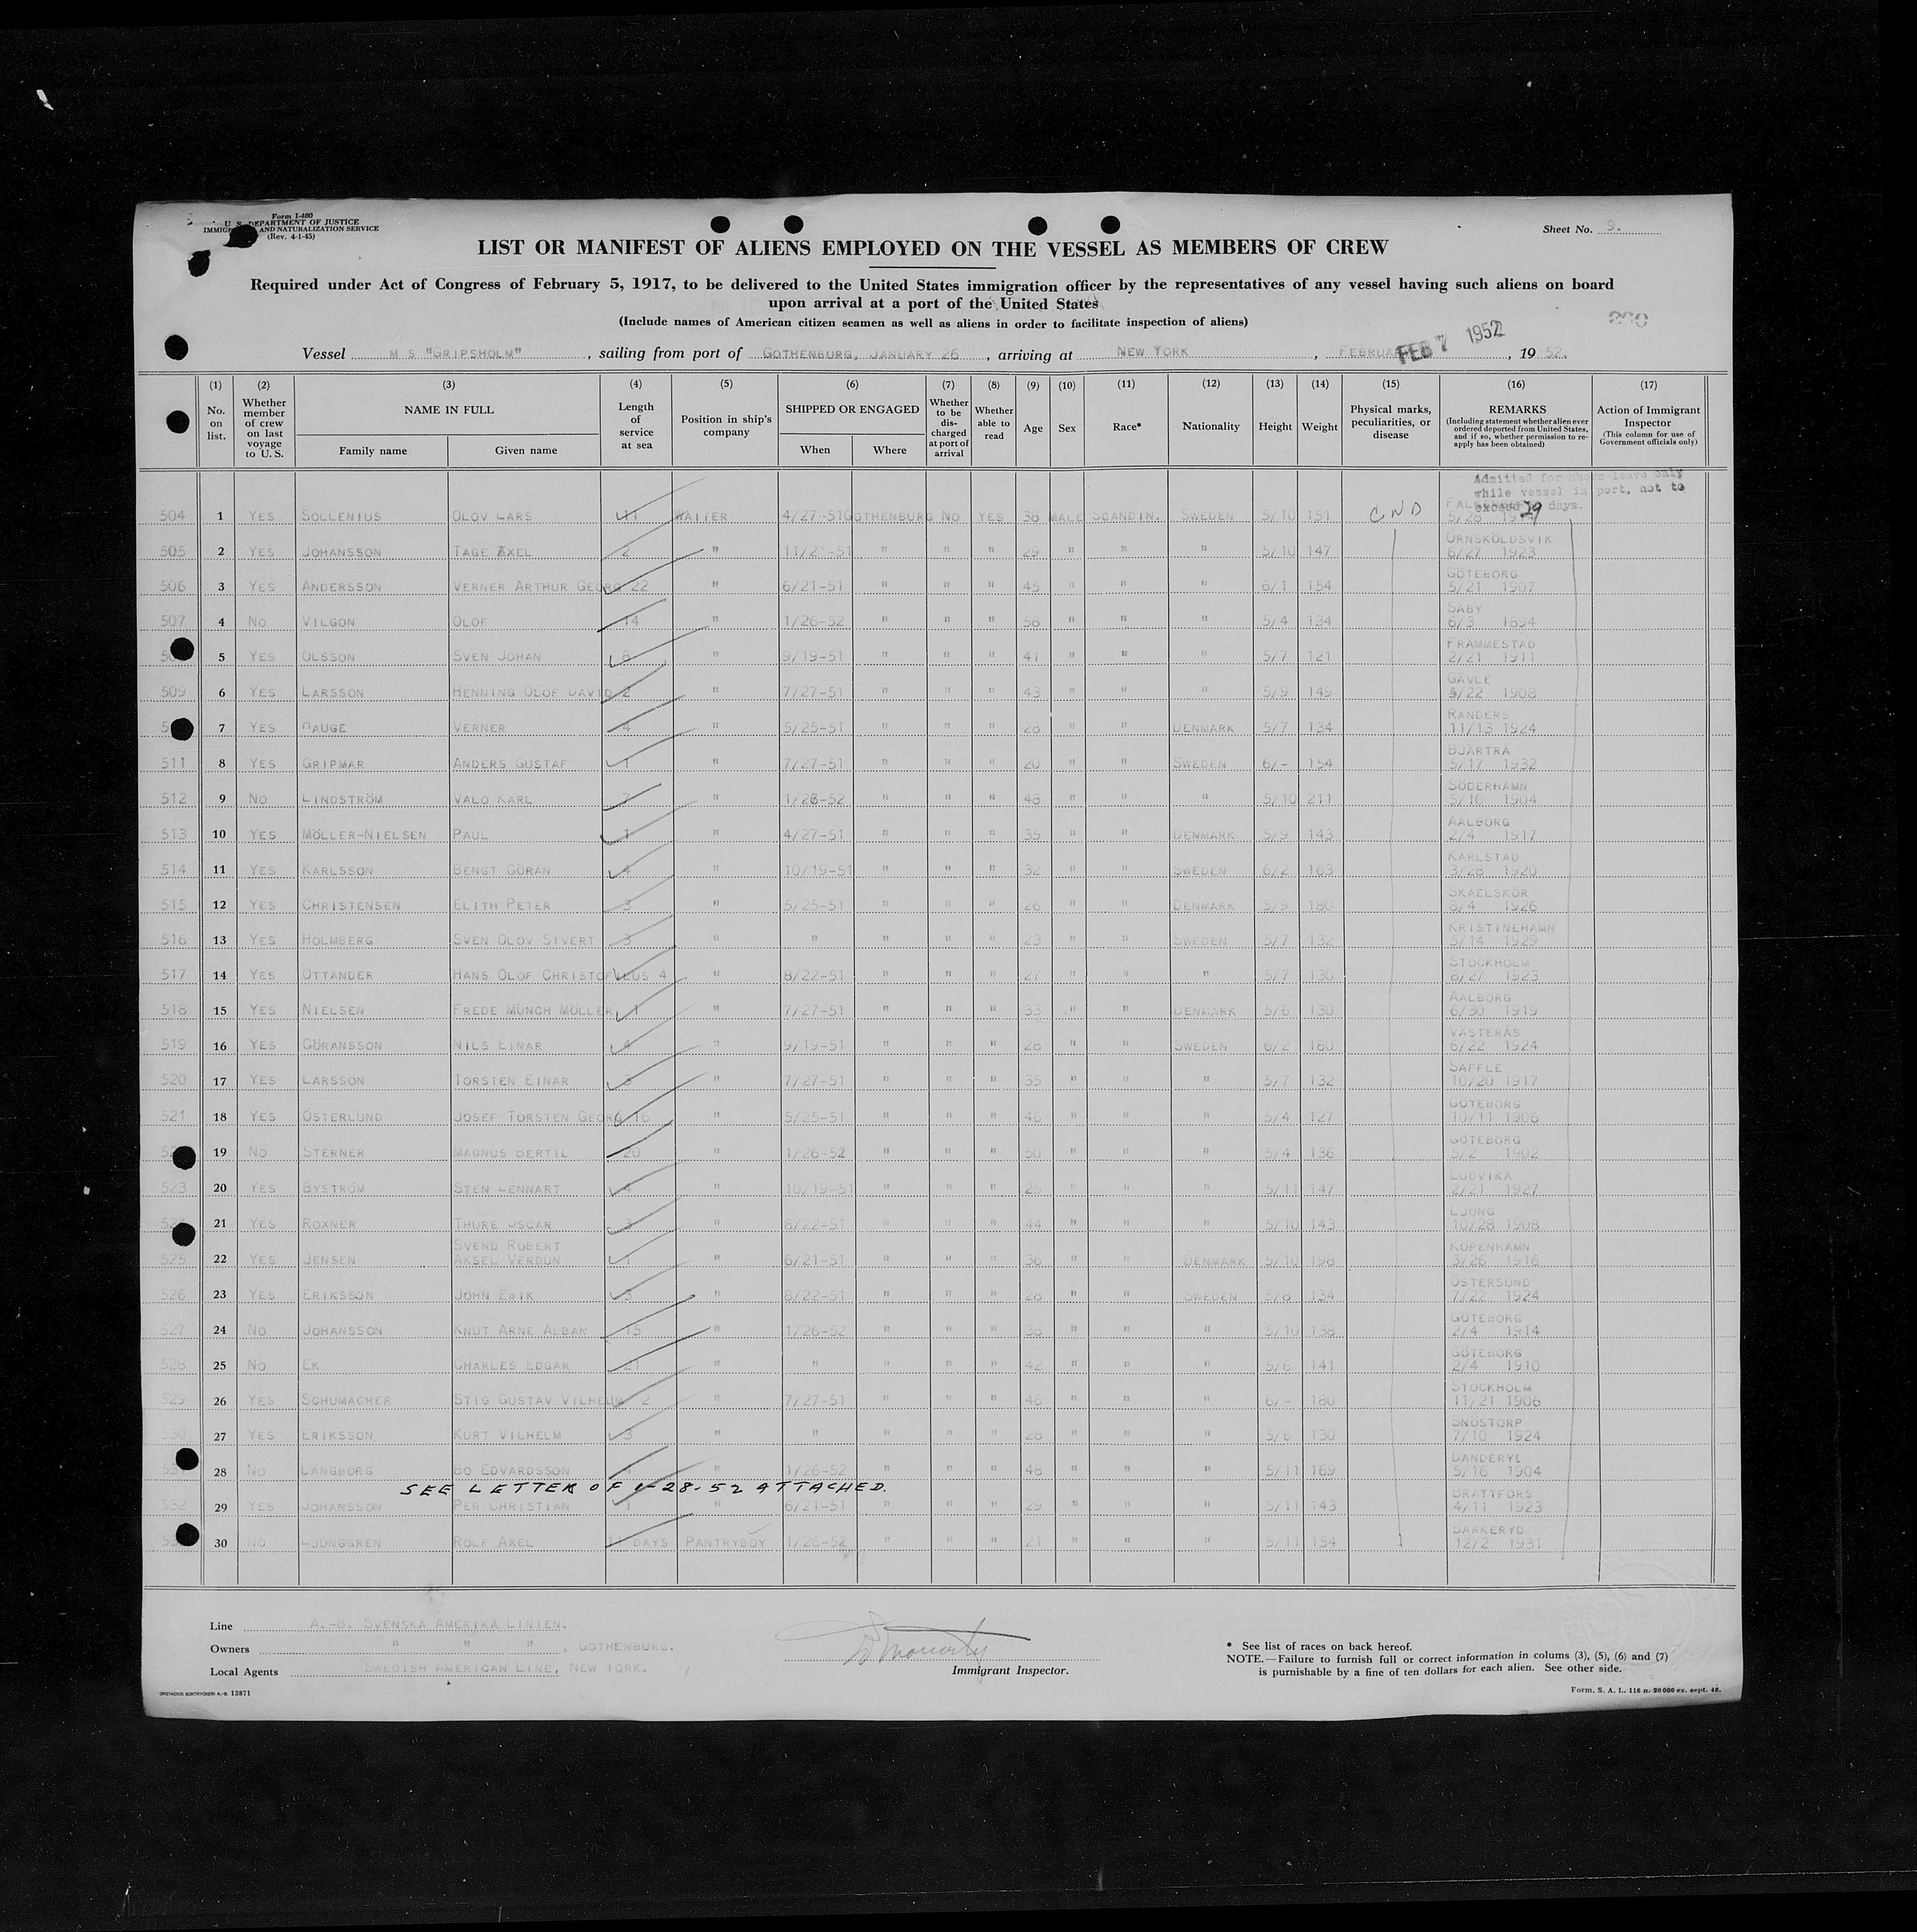 Form I-480
U. S. DEPARTMENT OF JUSTICE
IMMIGRATION AND NATURALIZATION SERVICE
(Rev. 4-1-45)
Sheet No. 9.
LIST OR MANIFEST OF ALIENS EMPLOYED ON THE VESSEL AS MEMBERS OF CREW
Required under Act of Congress of February 5, 1917, to be delivered to the United States immigration officer by the representatives of any vessel having such aliens on board
upon arrival at a port of the United States
(Include names of American citizen seamen as well as aliens in order to facilitate inspection of aliens)
Vessel M S "GRIPSHOLM", sailing from port of GOTHENBURG, JANUARY 26, arriving at NEW YORK, FEB 7 1952, 19 52.
(1) (2) (3) (4) (5) (6) (7) (8) (9) (10) (11) (12) (13) (14) (15) (16) (17)
No. on list. Whether member of crew on last voyage to U. S. NAME IN FULL Family name Given name Length of service at sea Position in ship's company SHIPPED OR ENGAGED When Where Whether to be discharged at port of arrival Whether able to read Age Sex Race* Nationality Height Weight Physical marks, peculiarities, or disease REMARKS (Including statement whether alien ever ordered deported from United States, and if so, whether permission to reapply has been obtained) Action of Immigrant Inspector (This column for use of Government officials only)
Admitted for shore leave only
while vessel in port, not to
exceed 29 days.
504 1 YES SOLLENIUS OLOV LARS 11 WAITER 4/27-51 GOTHENBURG NO YES 36 MALE SCANDIN. SWEDEN 5/10 151 CND
505 2 YES JOHANSSON TAGE AXEL 2 " " " " 29 " " " 5/10 147 ÖRNSKÖLDSVIK 6/27 1923
506 3 YES ANDERSSON VERNER ARTHUR GEORG 22 " 6/21-51 " " " 45 " " " 6/1 154 GÖTEBORG 5/21 1907
507 4 NO VILGON OLOF 14 " 1/26-52 " " " 58 " " " 5/4 134 SÄBY 6/3 1894
5 YES OLSSON SVEN JOHAN 8 " 9/19-51 " " " 41 " " " 5/7 121 FRÄMMESTAD 2/21 1911
509 6 YES LARSSON HENNING OLOF DAVID 2 " 7/27-51 " " " 43 " " " 5/9 149 GÄVLE 5/22 1908
7 YES HAUGE VERNER 4 " 5/25-51 " " " 28 " " DENMARK 5/7 134 RANDERS 11/13 1924
511 8 YES GRIPMAR ANDERS GUSTAF 1 " 7/27-51 " " " 20 " " SWEDEN 6/- 154 BJÄRTRÅ 5/17 1932
512 9 NO LINDSTRÖM VALO KARL 7 " 1/26-52 " " " 48 " " " 5/10 211 SÖDERHAMN 5/10 1904
513 10 YES MÖLLER-NIELSEN PAUL 1 " 4/27-51 " " " 35 " " DENMARK 5/9 143 AALBORG 2/4 1917
514 11 YES KARLSSON BENGT GÖRAN 4 " 10/19-51 " " " 32 " " SWEDEN 6/2 163 KARLSTAD 3/28 1920
515 12 YES CHRISTENSEN ELITH PETER 3 " 5/25-51 " " " 26 " " DENMARK 5/9 180 SKAELSKÖR 8/4 1926
516 13 YES HOLMBERG SVEN OLOV SIVERT 3 " " " " " 23 " " SWEDEN 5/7 132 KRISTINEHAMN 5/14 1929
517 14 YES OTTANDER HANS OLOF CHRISTOFFEUS 4 " 8/22-51 " " " 27 " " " 5/7 130 STOCKHOLM 8/27 1923
518 15 YES NIELSEN FREDE MÜNCH MÖLLER 1 " 7/27-51 " " " 33 " " DENMARK 5/6 130 AALBORG 6/30 1919
519 16 YES GÖRANSSON NILS EINAR 4 " 9/19-51 " " " 28 " " SWEDEN 6/2 180 VÄSTERÅS 6/22 1924
520 17 YES LARSSON TORSTEN EINAR 3 " 7/27-51 " " " 35 " " " 5/7 132 SÄFFLE 10/20 1917
521 18 YES ÖSTERLUND JOSEF TORSTEN GEORG 16 " 5/25-51 " " " 46 " " " 5/4 127 GÖTEBORG 10/11 1906
19 NO STERNER MAGNUS BERTIL 20 " 1/26-52 " " " 50 " " " 5/4 136 GÖTEBORG 5/2 1902
523 20 YES BYSTRÖM STEN LENNART 4 " 10/19-51 " " " 25 " " " 5/11 147 LUDVIKA 2/21 1927
21 YES ROXNER THURE OSCAR 3 " 8/22-51 " " " 44 " " " 5/10 143 LJUNG 10/28 1908
525 22 YES JENSEN SVEND ROBERT AKSEL VERDUN 1 " 6/21-51 " " " 36 " " DENMARK 5/10 198 KÖPENHAMN 3/26 1916
526 23 YES ERIKSSON JOHN ERIK 3 " 8/22-51 " " " 28 " " SWEDEN 5/8 134 ÖSTERSUND 7/22 1924
527 24 NO JOHANSSON KNUT ARNE ALBAN 15 " 1/26-52 " " " 38 " " " 5/10 138 GÖTEBORG 2/4 1914
528 25 NO EK CHARLES EDGAR 21 " " " " " 42 " " " 5/6 141 GÖTEBORG 2/4 1910
529 26 YES SCHUMACHER STIG GUSTAV VILHELM 2 " 7/27-51 " " " 46 " " " 6/- 180 STOCKHOLM 11/21 1906
530 27 YES ERIKSSON KURT VILHELM 3 " " " " " 28 " " " 5/6 130 SNÖSTORP 7/10 1924
28 NO LANGBORG BO EDVARDSSON " 1/26-52 " " " 48 " " " 5/11 169 DANDERYD 5/16 1904
SEE LETTER OF 1-28-52 ATTACHED.
532 29 YES JOHANSSON PER CHRISTIAN 1 " 6/21-51 " " " 29 " " " 5/11 143 BRATTFORS 4/11 1923
30 NO LJUNGGREN ROLF AXEL DAYS PANTRYBOY 1/26-52 " " " 21 " " " 5/11 154 BARKERYD 12/2 1931
Line A.-B. SVENSKA AMERIKA LINIEN.
Owners " " " , GOTHENBURG.
Local Agents SWEDISH AMERICAN LINE, NEW YORK.
Immigrant Inspector.
* See list of races on back hereof.
NOTE.—Failure to furnish full or correct information in colums (3), (5), (6) and (7)
is punishable by a fine of ten dollars for each alien. See other side.
ORSTADIUS BOKTRYCKERI A.-B. 13871
Form. S. A. L. 116 n. 20 000 ex. sept. 48.